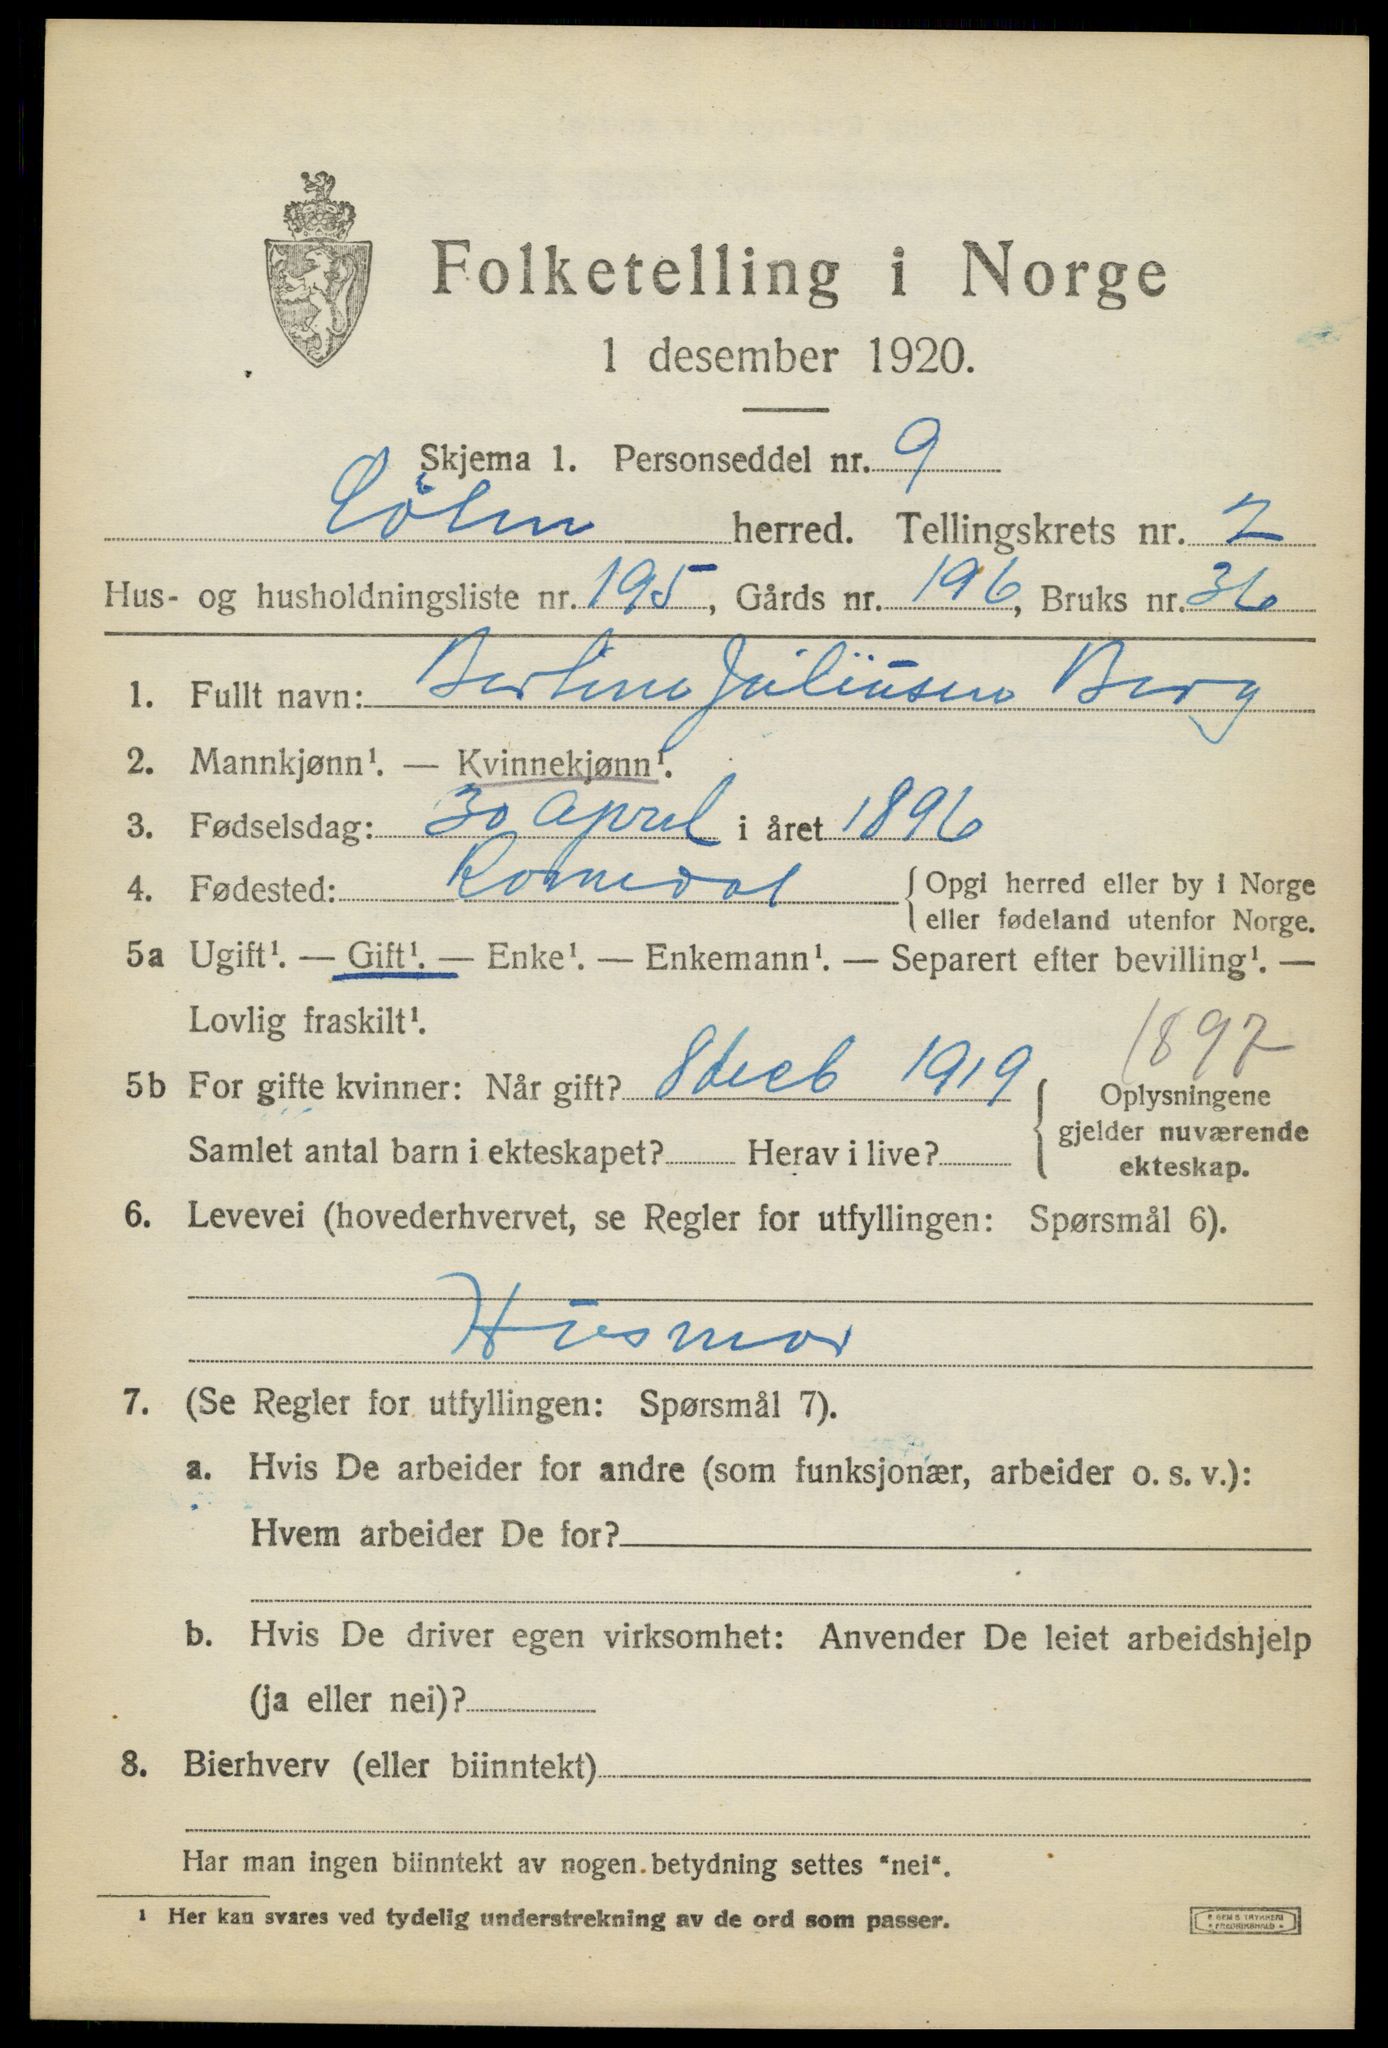 Folketelling i Norge
1 desember 1920.
Skjema 1. Personseddel nr. 9
Löten herred. Tellingskrets nr. 7
Hus- og husholdningsliste nr. 195, Gårds nr. 196, Bruks nr. 36
1. Fullt navn: Berthine Juliusen Berg
2. Mannkjønn¹. — Kvinnekjønn¹.
3. Fødselsdag: 30 April i året 1896
4. Fødested: Romedal { Opgi herred eller by i Norge
eller fødeland utenfor Norge.
5a Ugift¹. — Gift¹. — Enke¹. — Enkemann¹. — Separert efter bevilling¹. —
Lovlig fraskilt¹.
1897
5b For gifte kvinner: Når gift? 8 1919
Samlet antal barn i ekteskapet? Herav i live?
Oplysningene
gjelder nuværende
ekteskap.
6. Levevei (hovederhvervet, se Regler for utfyllingen: Spørsmål 6).
Husmor
7. (Se Regler for utfyllingen: Spørsmål 7).
a. Hvis De arbeider for andre (som funksjonær, arbeider o. s. v.):
Hvem arbeider De for?
b. Hvis De driver egen virksomhet: Anvender De leiet arbeidshjelp
(ja eller nei)?
8. Bierhverv (eller biinntekt)
Har man ingen biinntekt av nogen betydning settes "nei".
¹ Her kan svares ved tydelig understrekning av de ord som passer.